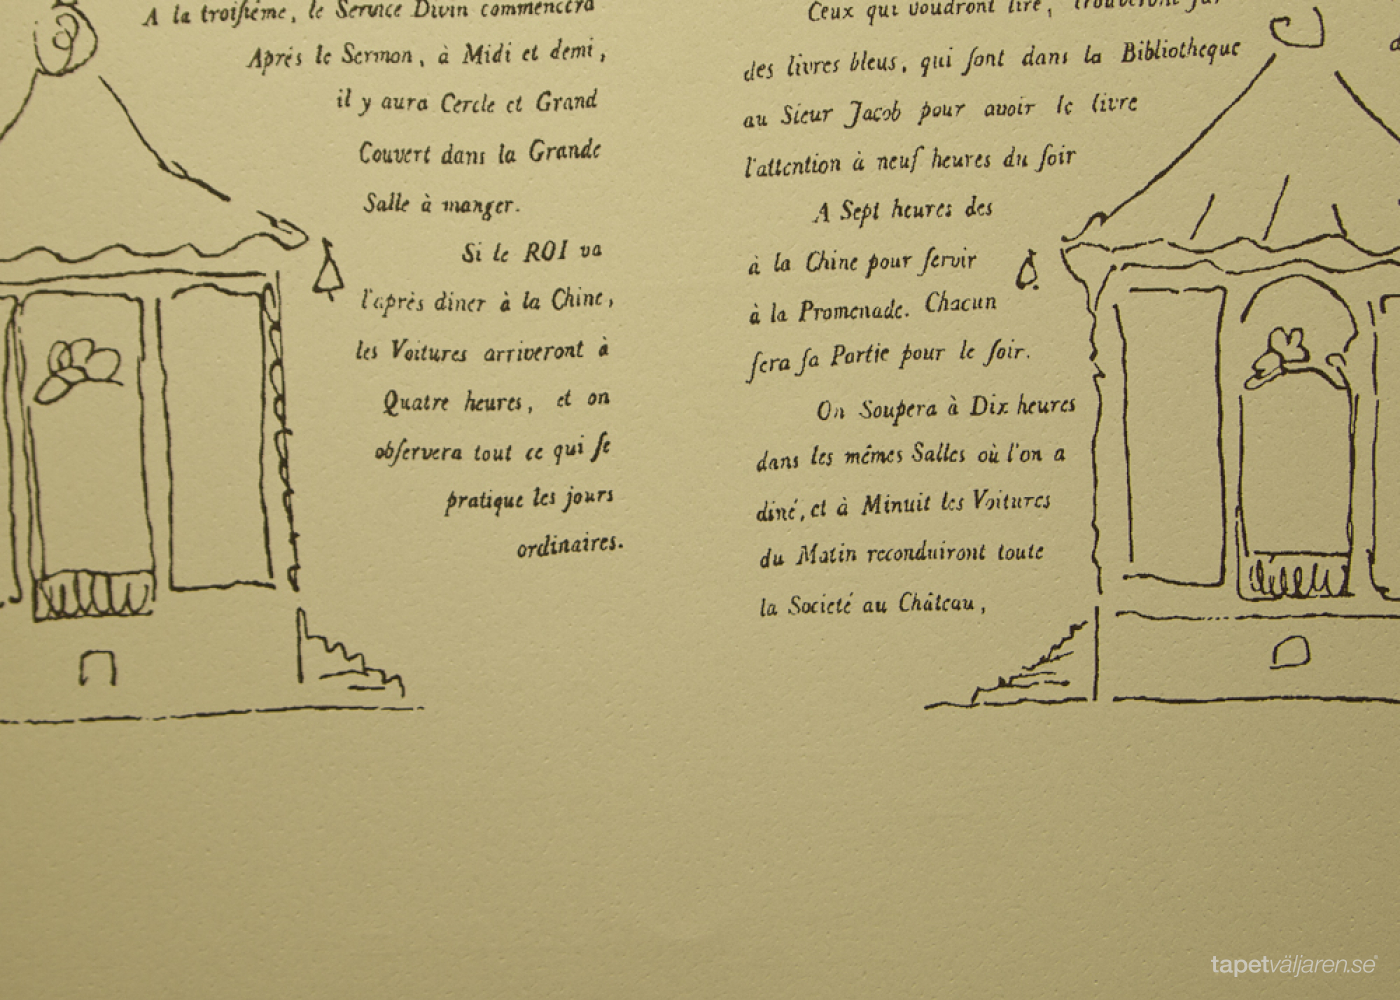 A la troiſiéme, le Service Divin commencera
Aprés le Sermon, à Midi et demi,
il y aura Cercle et Grand
Couvert dans la Grande
Salle à manger.
Si le ROI va
l'après diner à la Chine,
les Voitures arriveront à
Quatre heures, et on
obſervera tout ce qui ſe
pratique les jours
ordinaires.
Ceux qui voudront lire, trouveront
des livres bleus, qui ſont dans la Bibliotheque
au Sieur Jacob pour avoir le livre
l'attention à neuf heures du ſoir
A Sept heures des
à la Chine pour ſervir
à la Promenade. Chacun
ſera ſa Partie pour le ſoir.
On Soupera à Dix heures
dans les mêmes Salles où l'on a
diné, et à Minuit les Voitures
du Matin reconduiront toute
la Societé au Château,
tapetväljaren.se